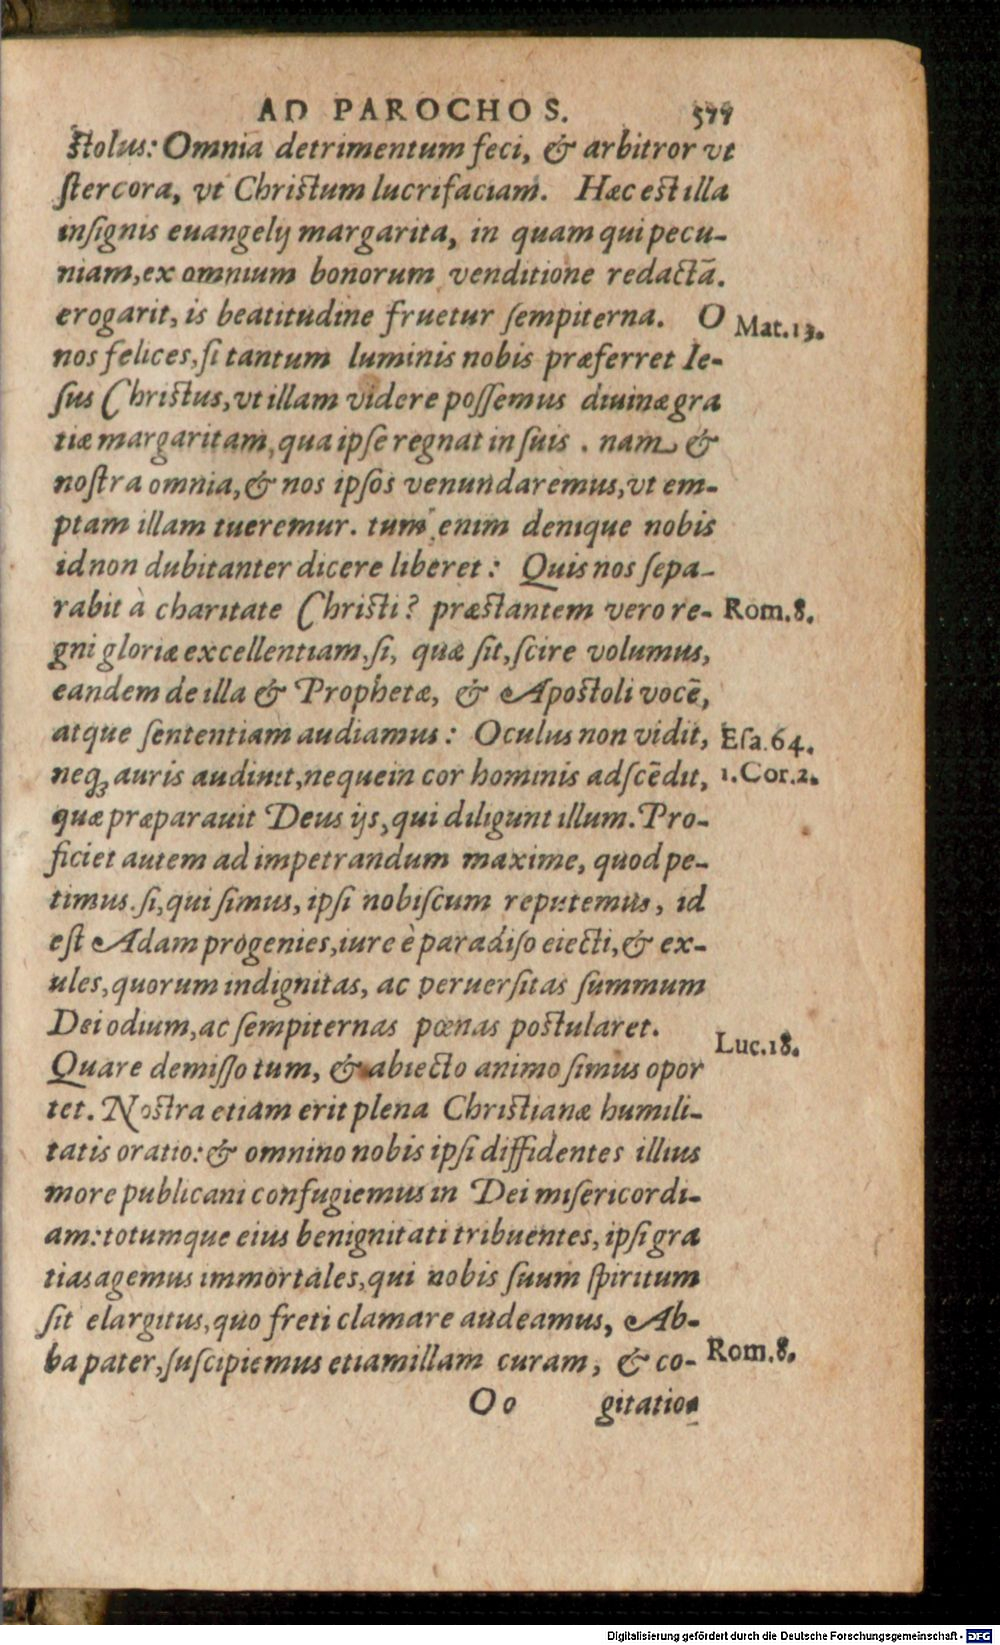 AD PAROCHOS. 577
ſtolus: Omnia detrimentum feci, & arbitror vt
ſtercora, vt Chriſtum lucrifaciam. Hæc eſt illa
inſignis euangelij margarita, in quam qui pecu-
niam, ex omnium bonorum venditione redactā.
erogarit, is beatitudine fruetur ſempiterna. O Mat.13.
nos felices, ſi tantum luminis nobis præferret Ie-
ſus Chriſtus, vt illam videre poſſemus diuinæ gra
tiæ margaritam, qua ipſe regnat in ſuis. nam &
noſtra omnia, & nos ipſos venundaremus, vt em-
ptam illam tueremur. tum enim denique nobis
id non dubitanter dicere liberet: Quis nos ſepa-
rabit à charitate Chriſti? præſtantem vero re- Rom.8.
gni gloriæ excellentiam, ſi, quæ ſit, ſcire volumus,
eandem de illa & Prophetæ, & Apoſtoli vocē,
atque ſententiam audiamus: Oculus non vidit, Eſa.64.
neq; auris audiuit, neque in cor hominis adſcēdit, 1.Cor.2.
quæ præparauit Deus ijs, qui diligunt illum. Pro-
ficiet autem ad impetrandum maxime, quod pe-
timus. ſi, qui ſimus, ipſi nobiſcum reputemus, id
eſt Adam progenies, iure è paradiſo eiecti, & ex-
ules, quorum indignitas, ac peruerſitas ſummum
Dei odium, ac ſempiternas pœnas poſtularet.
Luc.18.
Quare demiſſo tum, & abiecto animo ſimus opor
tet. Noſtra etiam erit plena Chriſtianæ humili-
tatis oratio: & omnino nobis ipſi diffidentes illius
more publicani confugiemus in Dei miſericordi-
am: totumque eius benignitati tribuentes, ipſi gra
tias agemus immortales, qui nobis ſuum ſpiritum
ſit elargitus, quo freti clamare audeamus, Ab-
ba pater, ſuſcipiemus etiam illam curam, & co- Rom.8.
Oo gitation
Digitalisierung gefördert durch die Deutsche Forschungsgemeinschaft - DFG